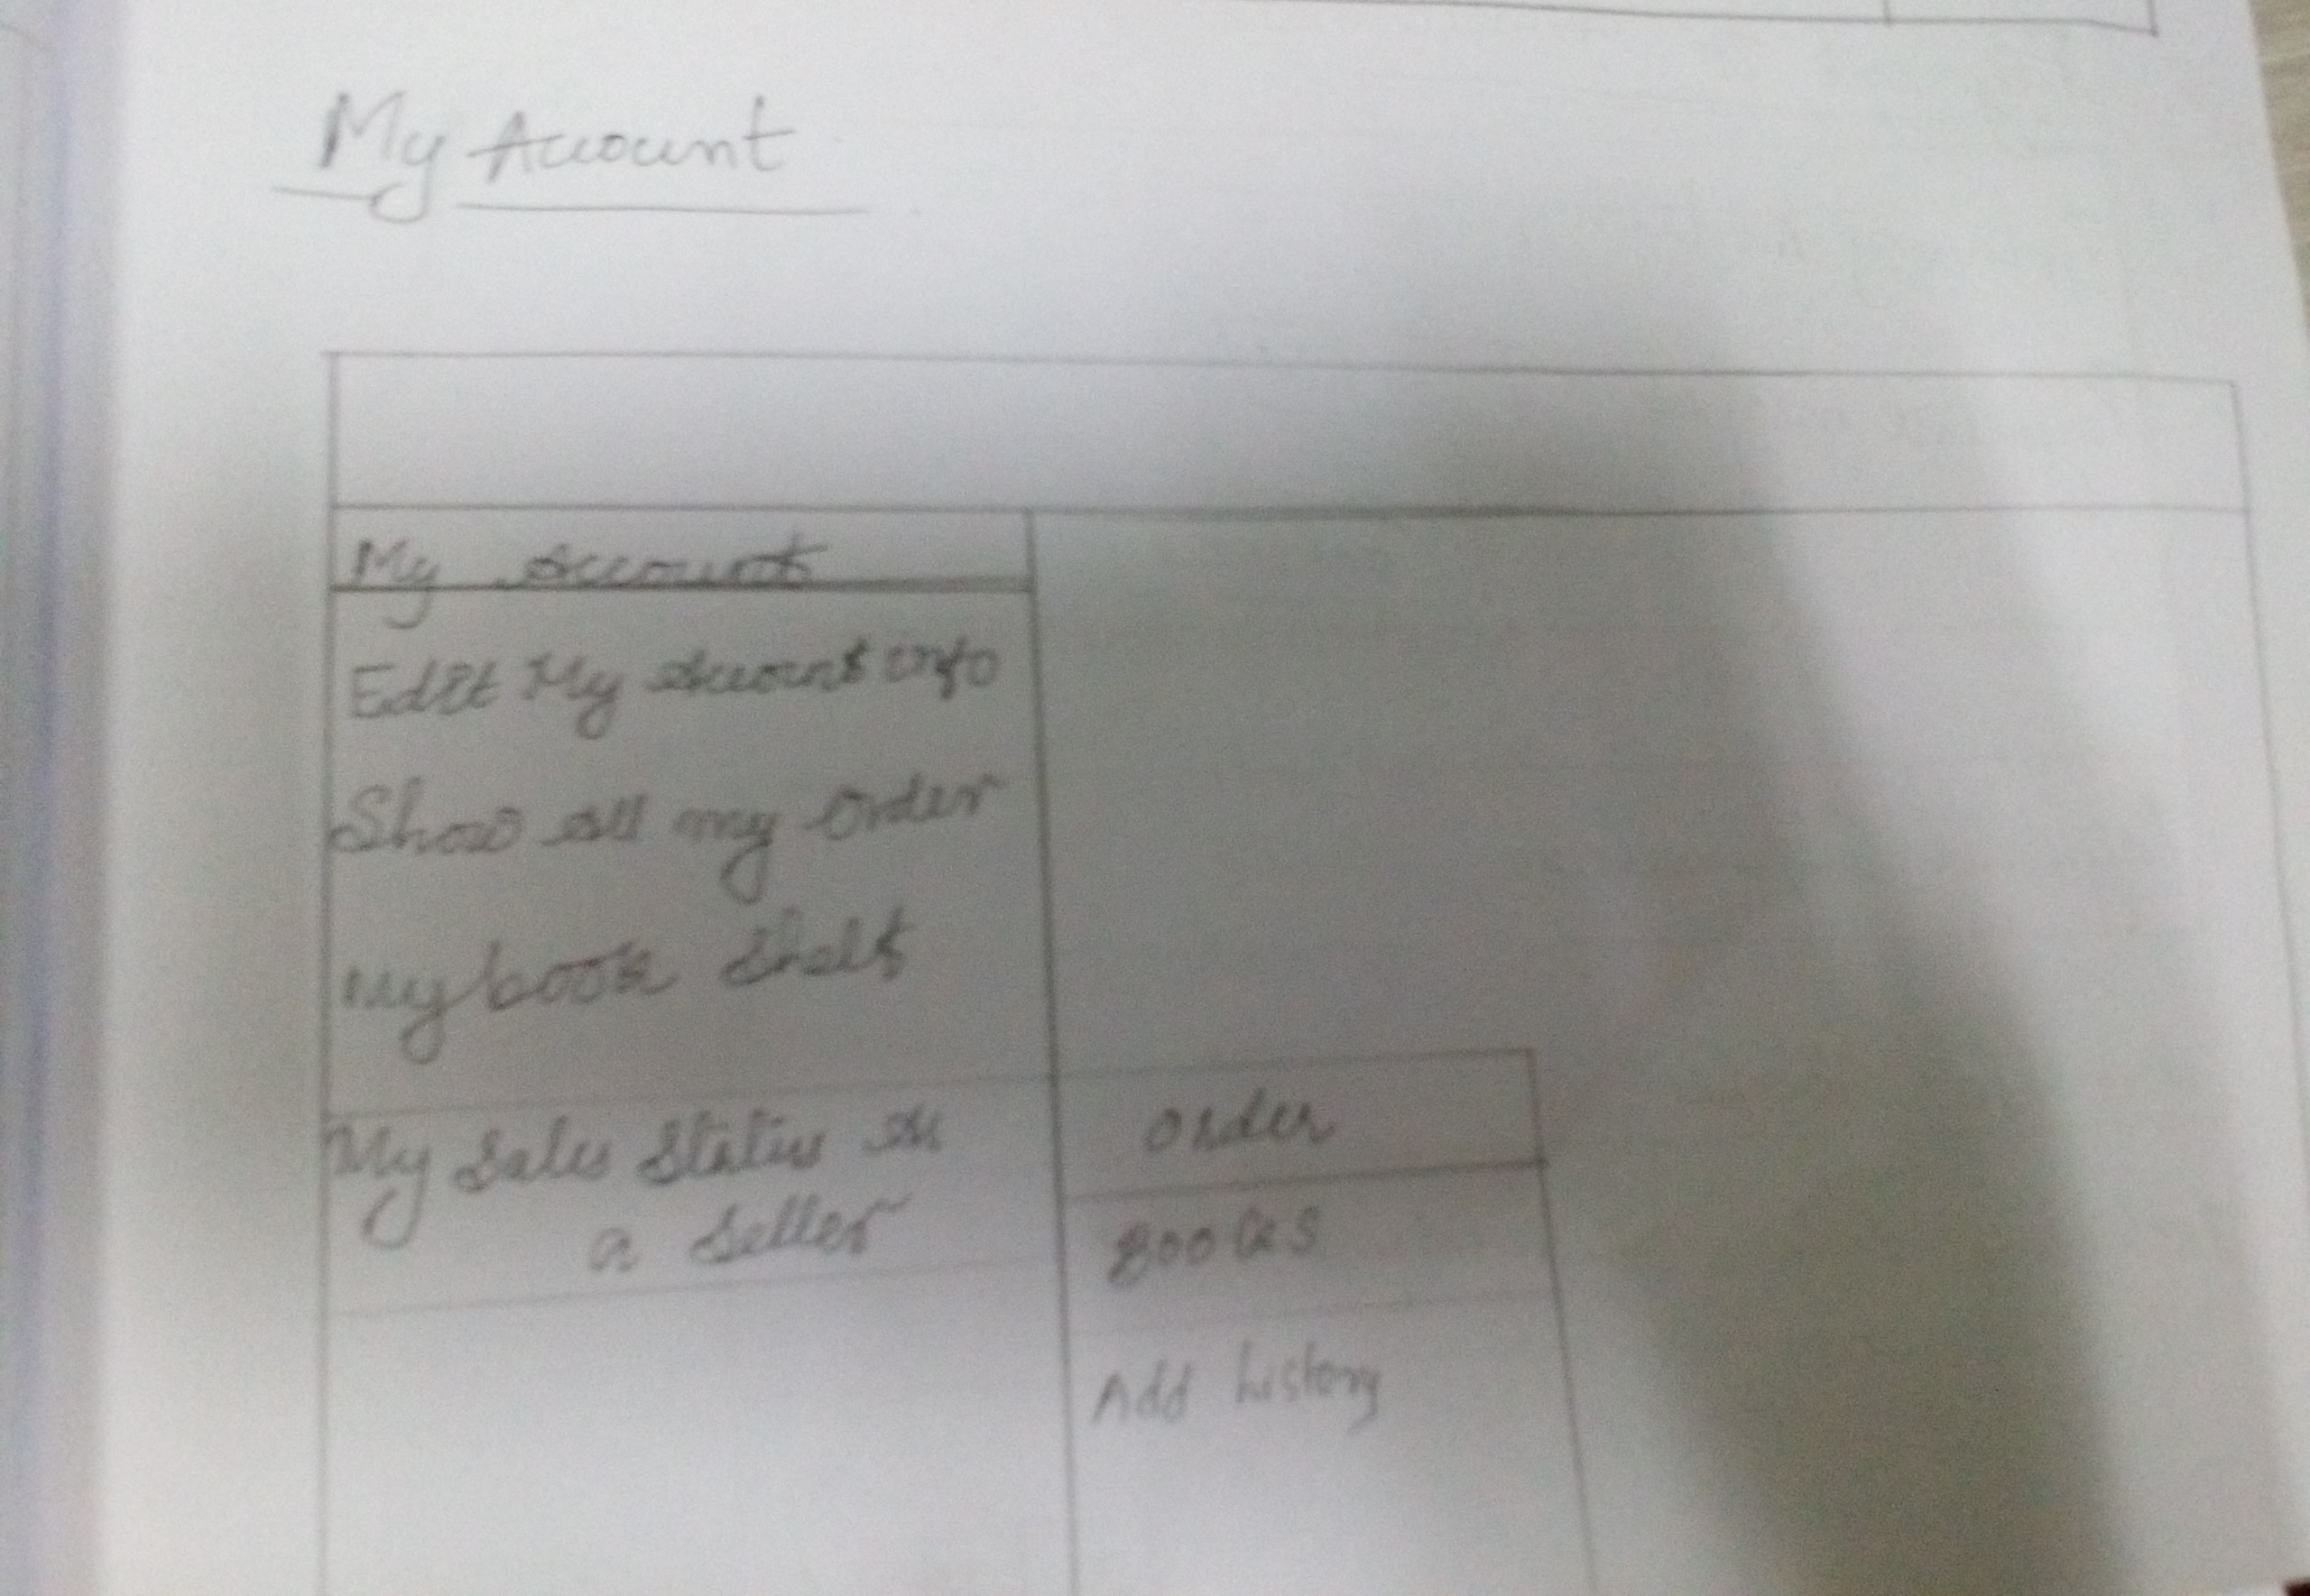 My Account
My Account
Edit My Account info
Show All my order
my book Shelf
My Sales Status As
a Seller
order
Books
Add history